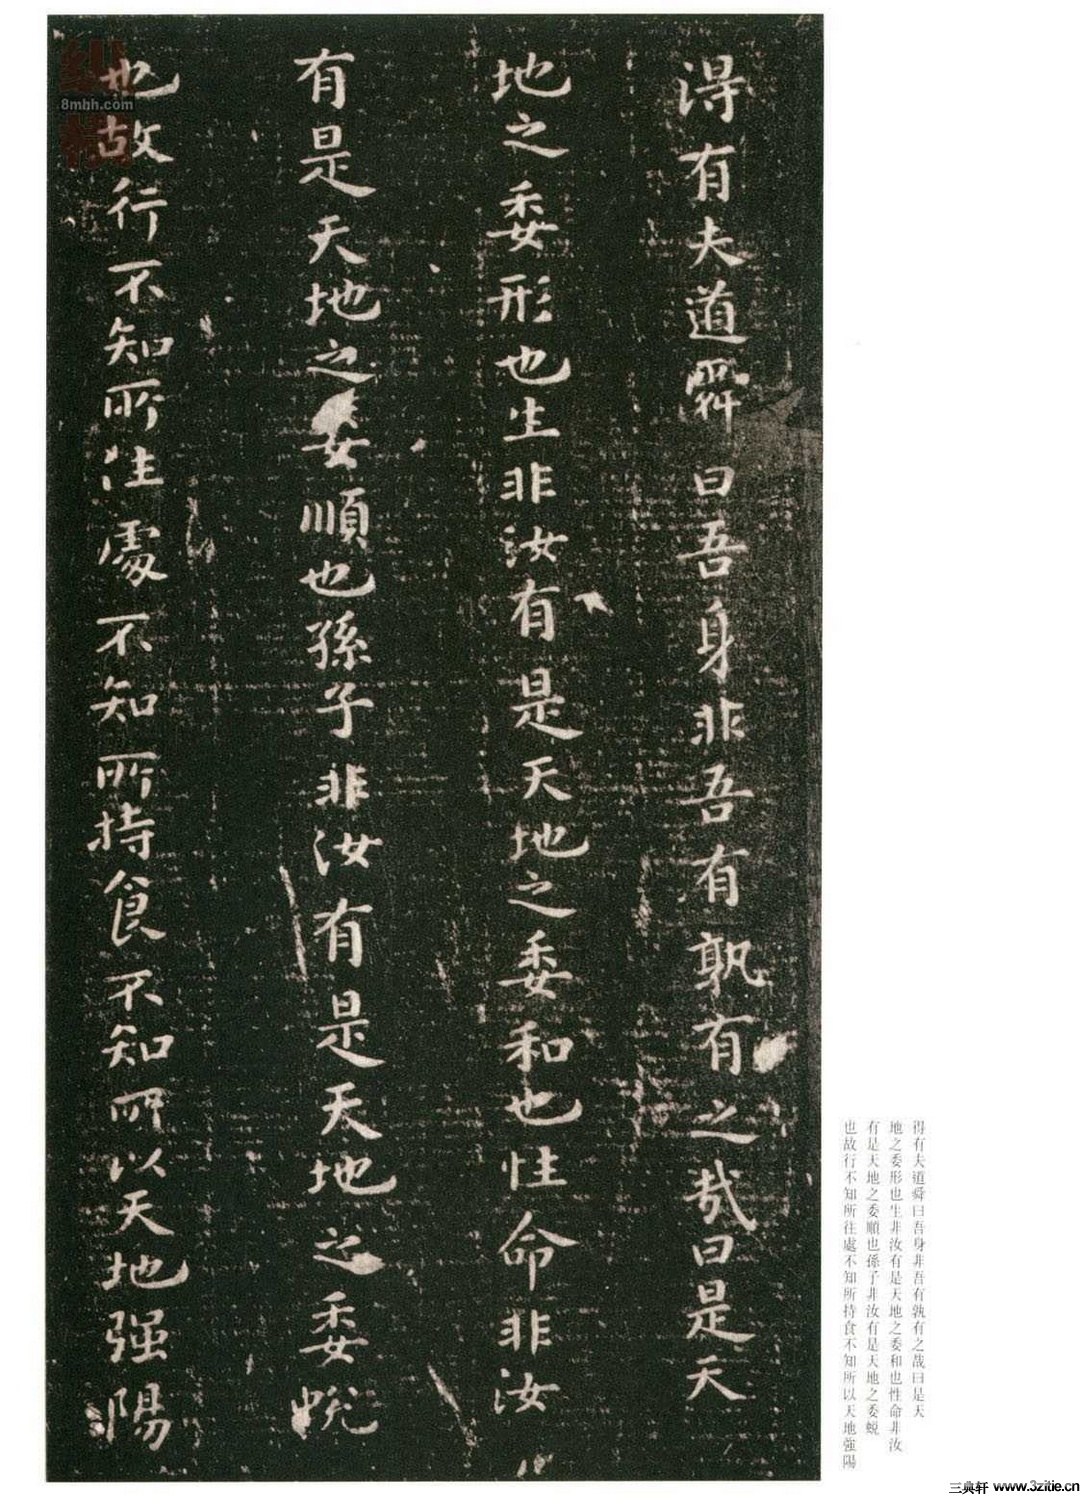 得有夫道舜曰吾身非吾有孰有之哉曰是天
地之委形也生非汝有是天地之委和也性命非汝
有是天地之委順也孫子非汝有是天地之委蛻
也故行不知所往處不知所持食不知所以天地强陽
得有夫道舜曰吾身非吾有孰有之哉曰是天
地之委形也生非汝有是天地之委和也性命非汝
有是天地之委順也孫子非汝有是天地之委蛻
也故行不知所往處不知所持食不知所以天地強陽
8mbh.com
三典轩 www.3zitie.cn